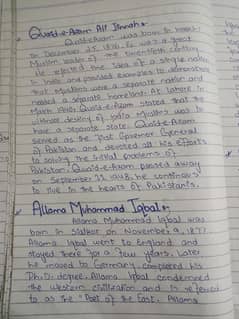 Quaid-e-Azam Ali Jinnah:
Quaid-e-Azam was born in Karachi
on December 25, 1876. He was a great
Muslim leader of the twentieth century.
He rejected the idea of a single nation
in India and provided examples to demonstrate
that Muslims were a separate nation and
needed a separate homeland. At Lahore in
March 1940, Quaid-e-Azam stated that the
ultimate destiny of India Muslims was to
have a separate state. Quaid-e-Azam
served as the first Governor General
of Pakistan and devoted all his efforts
to solving the initial problems of
Pakistan. Quaid-e-Azam passed away
on September 11, 1948. he continues
to live in the hearts of Pakistanis.
Allama Muhammad Iqbal:
Allama Muhammad Iqbal was
born in Sialkot on November 9, 1877.
Allama Iqbal went to England and
stayed there for a few years. Later,
he moved to Germany, completed his
Ph.D. degree. Allama Iqbal condemned
the western civilization and is referred
to as the "Poet of the East. Allama